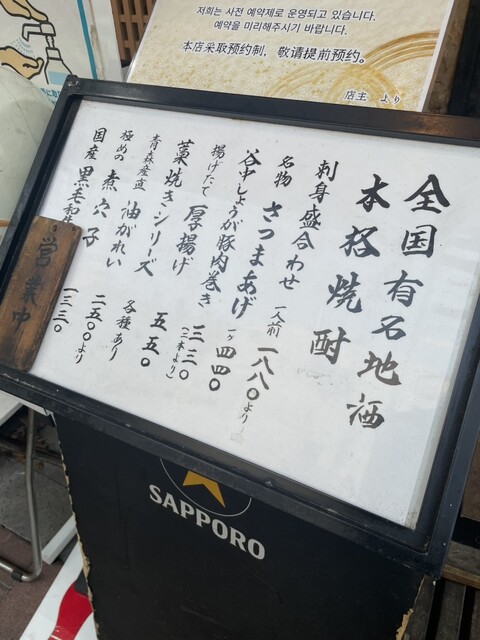 저희는 사전 예약제로 운영되고 있습니다.
예약을 미리해주시기 바랍니다.
本店采取预约制，敬请提前预约。
店主 より
全国有名地酒
本格焼酎
刺身盛合わせ 一人前 一八八〇より
名物 さつまあげ 一ヶ 四四〇
谷中しょうが豚肉巻き 三三〇(二本より)
揚げたて 厚揚げ 五五〇
藁焼きシリーズ 各種あり
青森産直 油がれい 二五〇〇より
極めの 煮穴子 一三三〇
国産 黒毛和牛
営業中
SAPPORO